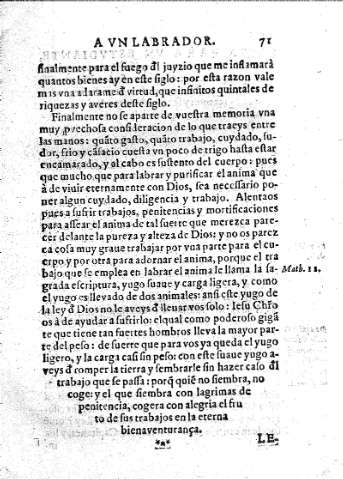 A VN LABRADOR. 71
finalmente para el fuego đl juyzio que me inflamarà
quantos bienes ay en este siglo: por esta razon vale
mas vna adarame đ virtud, que infinitos quintales de
riquezas y averes deste siglo.
Finalmente no se aparte de vuestra memoria vna
muy prechosa consideracion de lo que traeys entre
las manos: quãto gasto, quãto trabajo, cuydado, su-
dor, frio y cãsacio cuesta vn poco de trigo hasta estar
encamarado, y al cabo es sustento del cuerpo: pues
que mucho que para labrar y purificar èl anima que
à de viuir eternamente con Dios, sea necessario po-
ner algun cuydado, diligencia y trabajo. Alentaos
pues a sufrir trabajos, penitencias y mortificaciones
para assear el anima de tal suerte que merezca pare-
cer delante la pureza y alteza de Dios: y no os parez
ca cosa muy graue trabajar por vna parte para el cu-
erpo y por otra para adornar el anima, porque el tra
bajo que se emplea en labrar el anima le llama la sa-
grada escriptura, yugo suaue y carga ligera, y como
Math. 11.
el yugo es lleuado de dos animales: ansi este yugo de
la ley đ Dios no le aveys đ lleuar vos solo: Iesu Chrĩo
os à de ayudar a sufrirlo: el qual como poderoso gigã
te que tiene tan fuertes hombros lleva la mayor par-
te del peso: de suerte que para vos ya queda el yugo
ligero, y la carga casi sin peso: con este suaue yugo a-
veys đ romper la tierra y sembrarle sin hazer caso đl
trabajo que se passa: porq̃ quiẽ no siembra, no
coge: y el que siembra con lagrimas de
penitencia, cogera con alegria el fru
to de sus trabajos en la eterna
bienaventurança.
LE-